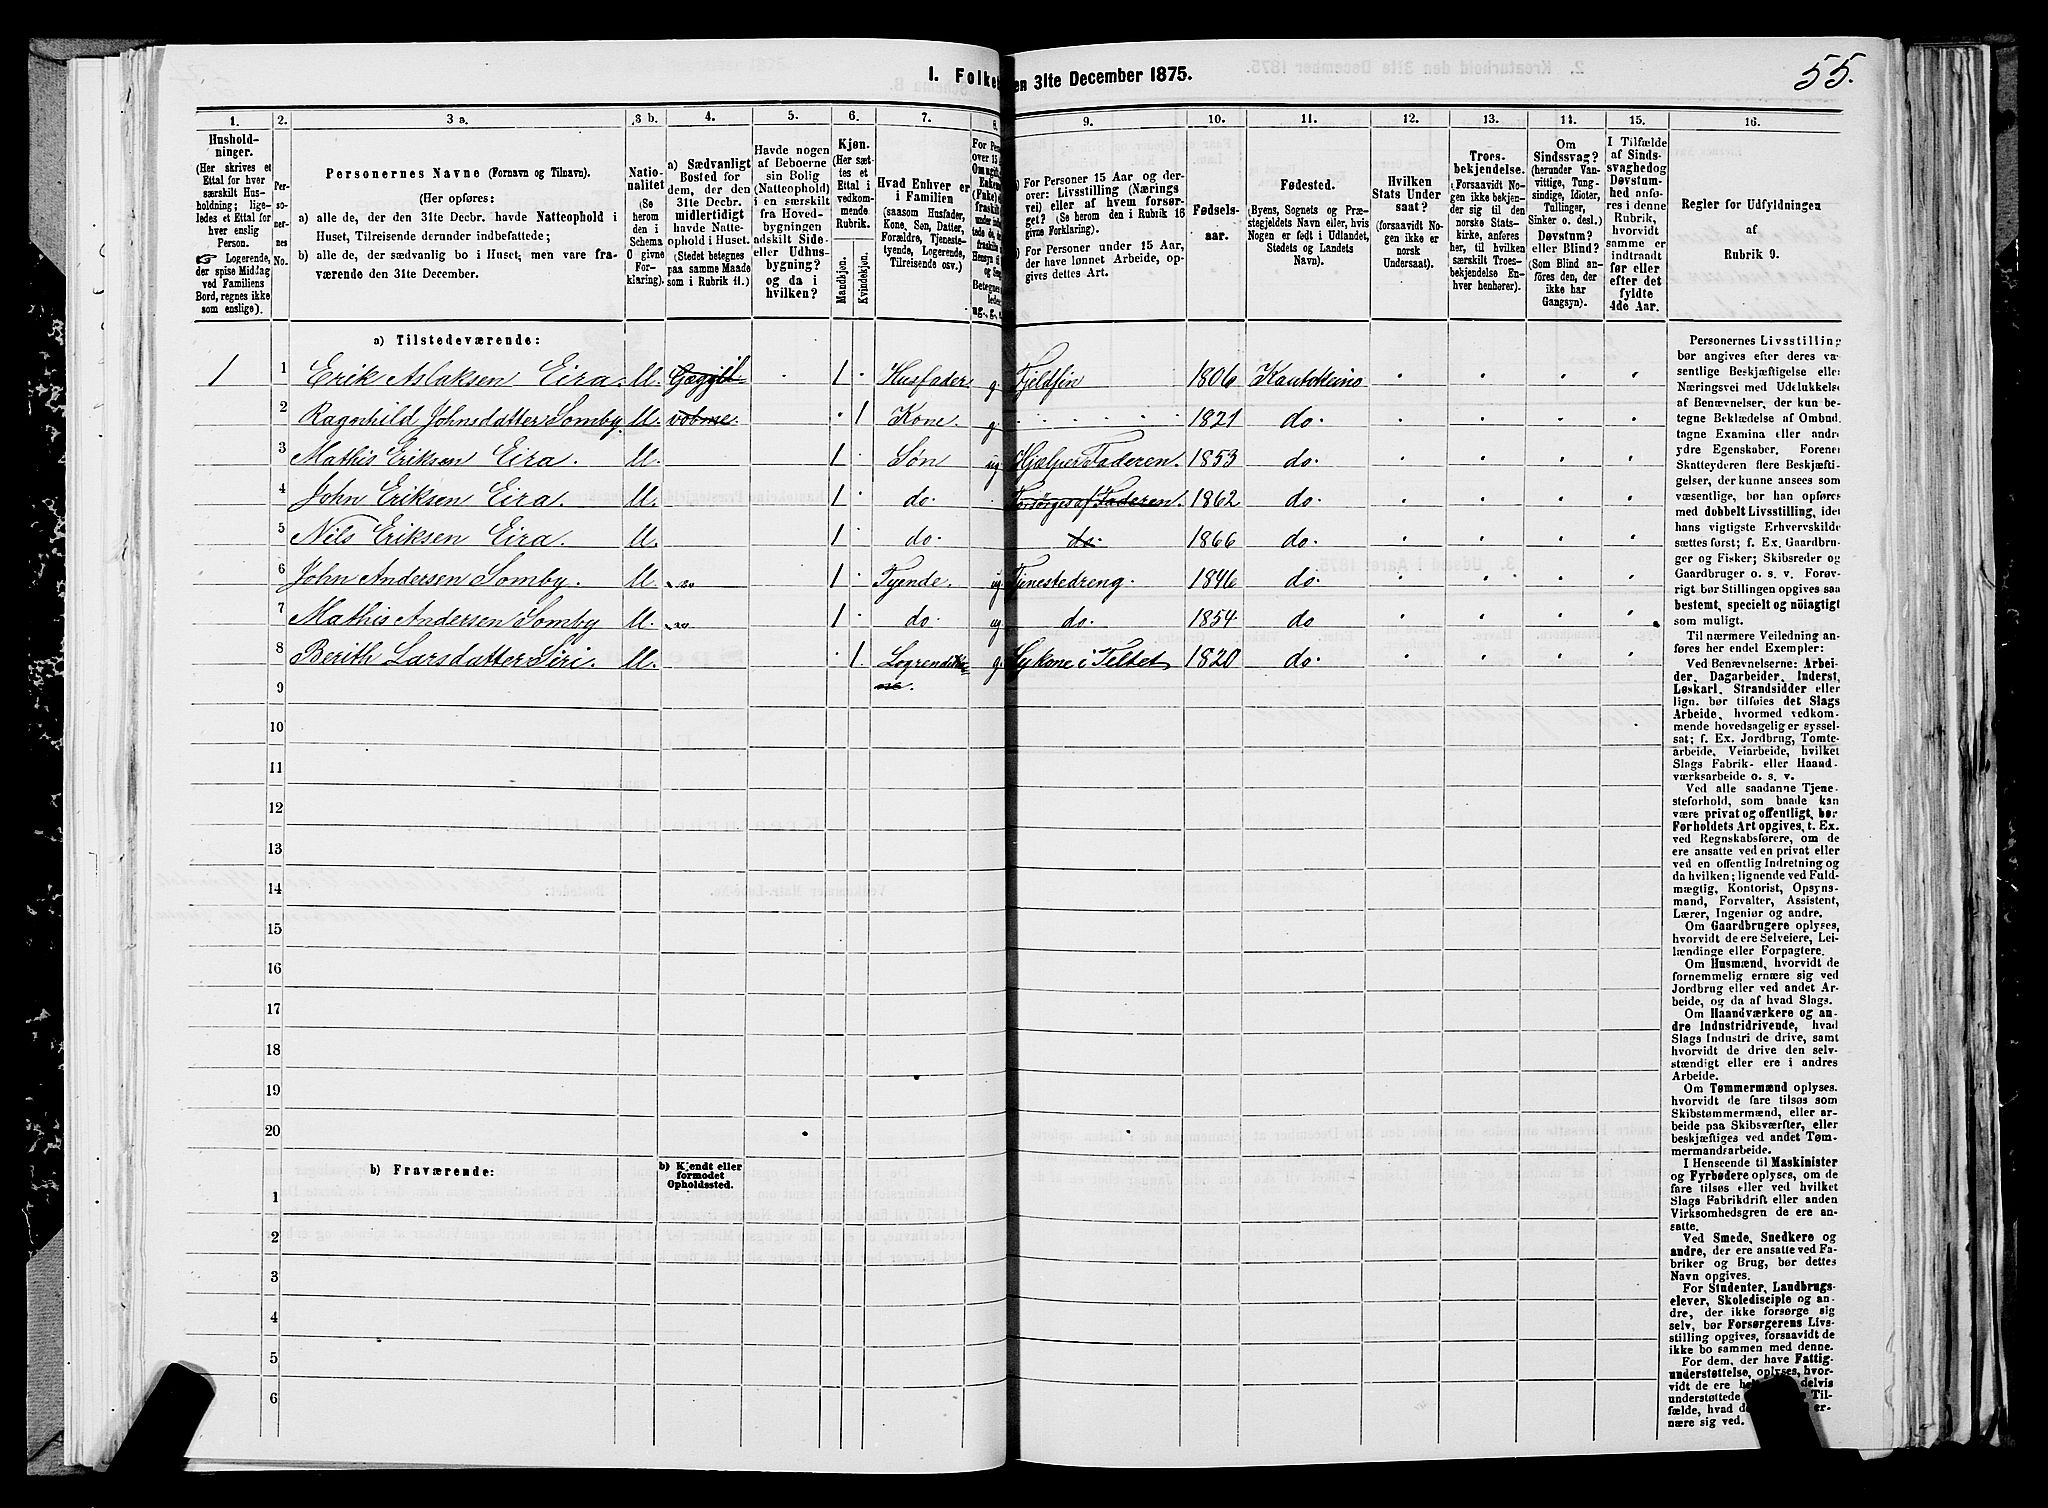 I. Folke
en 31te December 1875.
55.
1.
Hushold-
ninger.
(Her skrives et
Ettal for hver
særskilt Hus-
holdning; lige-
ledes et Ettal for
hver enslig
Person.
Logerende,
der spise Middag
ved Familiens
Bord, regnes ikke
som enslige).
2.
Per-
sono-
ner-
nes
No.
3 a.
Personernes Navne (Fornavn og Tilnavn).
(Her opføres:
a) alle de, der den 31te Decbr. havde Natteophold i
Huset, Tilreisende derunder indbefattede;
b) alle de, der sædvanlig bo i Huset, men vare fra-
værende den 31te December.
3 b.
Natio-
nalitet
(Se
herom
den i
Schema
O givne
For-
klaring).
4.
a) Sædvanligt
Bosted for
dem, der den
31te Decbr.
midlertidigt
havde Natte-
ophold i Huset.
(Stedet betegnes
paa samme Maade
som i Rubrik 11.)
5.
Havde nogen
af Beboerne
sin Bolig
(Natteophold)
i en særskilt
fra Hoved-
bygningen
adskilt Side-
eller Udhus-
bygning?
og da i
hvilken?
6.
Kjøn.
(Her sæt-
tes et
Ettal i
vedkom-
mende
Rubrik.
Mandkjøn.
Kvindekjøn.
7.
Hvad Enhver er
i Familien
(saasom Husfader,
Kone, Søn, Datter,
Forældre, Tjeneste-
tyende, Logerende,
Tilreisende osv.)
8.
9.
For Personer 15 Aar og der-
over: Livsstilling (Nærings
vei) eller af hvem forsør-
get? (Se herom den i Rubrik 16
givne Forklaring).
For Personer under 15 Aar,
der have lønnet Arbeide, op-
gives dettes Art.
10.
Fødsels-
aar.
11.
Fødested.
(Byens, Sognets og Præ-
stegjeldets Navn eller, hvis
Nogen er født i Udlandet,
Stedets og Landets
Navn).
12.
Hvilken
Stats Under
saat?
(forsaavidt No-
gen ikke er
norsk
Undersaat).
13.
Troes-
bekjendelse.
(Forsaavidt No-
gen ikke bekjen-
der sig til den
norske Stats-
kirke, anføres
her, til hvilken
særskilt Troes-
bekjendelse En-
hver henhører).
14.
Om
Sindssvag?
(herunder Van-
vittige, Tung-
sindige, Idioter,
Tullinger,
Sinker o. desl.)
Døvstum?
eller Blind?
(Som Blind an-
føres den, der
ikke har
Gangsyn).
15.
I Tilfælde
af Sinds-
svaghed og
Døvstum-
hed anfø-
res i denne
Rubrik,
hvorvidt
samme er
indtraadt
før eller
efter det
fyldte
4de Aar.
16.
Regler for Udfyldningen
af
Rubrik 9.
a) Tilstedeværende:
1 1 Erik Aslaksen Eira. M. 1 Husfader g. Fjeldfin 1806 Kautokeino
2 Ragnhild Johnsdatter Somby. M. 1 Kone. g. 1821 do.
3 Mathis Eriksen Eira. M. 1 Søn ug Hjælper Faderen. 1853 do.
4 John Eriksen Eira. M. 1 do. Forsørges af Faderen. 1862 do.
5 Nils Eriksen Eira. M. 1 do. do. 1866 do.
6 John Andersen Somby. M. 1 Tyende. ug. Tjenestedreng. 1846 do.
7 Mathis Andersen Somby M. 1 do. ug do. 1854 do
8 Berith Larsdatter Siri. M. 1 g. Sykone i Teltet 1820 do.
9
10
11
12
13
14
15
16
17
18
19
20
b) Fraværende:
b) Kjendt eller
formodet
Opholdssted.
1
2
3
4
5
6
Personernes Livsstilling
bør angives efter deres væ-
sentlige Beskjæftigelse eller
Næringsvei med Udelukkelse
af Benævnelser, der kun be-
tegne Beklædelse af Ombud,
tagne Examina eller andre
ydre Egenskaber. Forener
Skatteyderen flere Beskjæfti-
gelser, der kunne ansees som
væsentlige, bør han opføres
med dobbelt Livsstilling, idet
hans vigtigste Erhvervskilde
sættes først; f. Ex. Gaardbru-
ger og Fisker; Skibsreder og
Gaardbruger o. s. v. Forøv-
rigt bør Stillingen opgives saa
bestemt, specielt og nöiagtigt
som muligt.
Til nærmere Veiledning an-
føres her endel Exempler:
Ved Benævnelserne: Arbei-
der, Dagarbeider, Inderst,
Løskarl, Strandsidder eller
lign. bør tilføies det Slags
Arbeide, hvormed vedkom-
mende hovedsagelig er syssel-
sat; f. Ex. Jordbrug, Tomte-
arbeide, Veiarbeide, hvilket
Slags Fabrik- eller Haand-
værksarbeide o. s. v.
Ved alle saadanne Tjene-
steforhold, som baade kan
være privat og offentligt, bør
Forholdets Art opgives, t. Ex.
ved Regnskabsførere, om de
ere ansatte ved en privat eller
ved en offentlig Indretning og
da hvilken; lignende ved Fuld-
mægtig, Kontorist, Opsyns-
mand, Forvalter, Assistent,
Lærer, Ingeniør og andre.
Om Gaardbrugere oplyses,
hvorvidt de ere Selveiere, Lei-
lændinge eller Forpagtere.
Om Husmænd, hvorvidt de
fornemmelig ernære sig ved
Jordbrug eller ved andet Ar-
beide, og da af hvad Slags.
Om Haandværkere og an-
dre Industridrivende, hvad
Slags Industri de drive, samt
hvorvidt de drive den selv-
stændigt eller ere i andres
Arbeide.
Om Tømmermænd oplyses.
hvorvidt de fare tilsøs som
Skibstømmermænd, eller ar-
beide paa Skibsværfter, eller
beskjæftiges ved andet Tøm-
mermandsarbeide.
I Henseende til Maskinister
og Fyrbødere oplyses, om de
fare tilsøs eller ved hvilket
Slags Fabrikdrift eller anden
Virksomhedsgren de ere an-
satte.
Ved Smede, Snedkere og
andre, der ere ansatte ved Fa-
briker og Brug, bør dettes
Navn opgives.
For Studenter, Landbrugs-
elever, Skoledisciple og an-
dre, der ikke forsørge sig
selv, bør Forsørgerens Livs-
stilling opgives, forsaavidt de
ikke bo sammen med denne.
For dem, der have Fattig-
understøttelse, oplyses, hvor-
vidt de ere delvis
understøttede Til-
fælde, hvad de er-
nære sig ved.